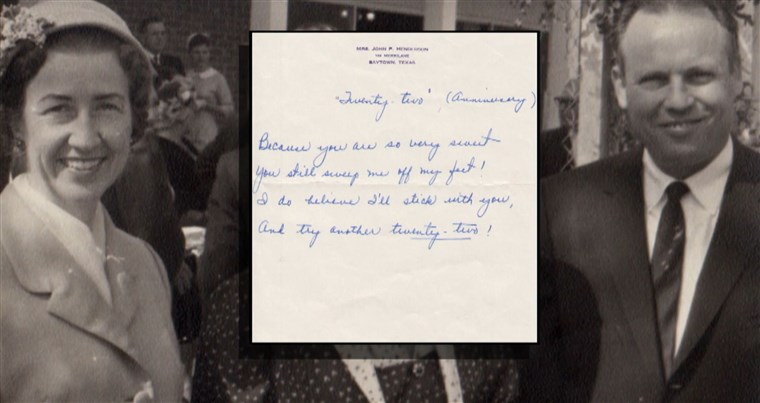 MRS. JOHN P. HENDERSON
BAYTOWN, TEXAS
"Twenty-two" (Anniversary)
Because you are so very sweet
You still sweep me off my feet!
I do believe I'll stick with you,
And try another twenty-two!